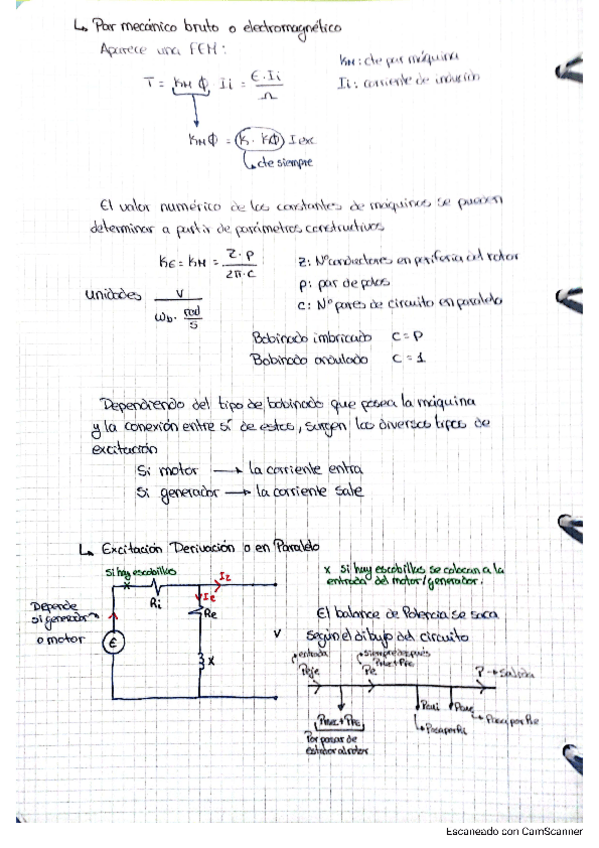 ↳ Par mecánico bruto o electromagnético
Aparece una FEM:
KM: cte par máquina
Ii: corriente de inducido
T = KM Φ Ii = E·Ii / Ω
KMΦ = (K·KΦ) Iex
↳ cte siempre
El valor numérico de las constantes de máquinas se pueden
determinar a partir de parámetros constructivos
KE = KM = Z·P / 2π·C
Z: Nº conductores en periferia del rotor
P: par de polos
C: Nº pares de circuito en paralelo
unidades V / Wb · rad/s
Bobinado imbricado C = P
Bobinado ondulado C = 1
Dependiendo del tipo de bobinado que posea la máquina
y la conexión entre sí de estos, surgen los diversos tipos de
excitación
Si motor → la corriente entra
Si generador → la corriente sale
↳ Excitación Derivación o en Paralelo
Si hay escobillas
x si hay escobillas se colocan a la
entrada del motor/generador.
Depende
si generador
o motor
E
Ri
Iz
Ie
Re
x
V
El balance de Potencia se saca
según el dibujo del circuito
entrada
Peje
siempre después
Pmec + PFe
Pe
P → Salida
Pmec + PFe
Por pasar de
estator al rotor
Pcui
↳ Pasa por Ri
Pcue
↳ Pasa por Re
Escaneado con CamScanner